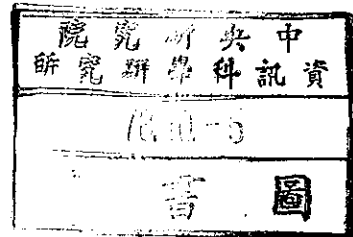 中央研究院
資訊科學研究所
圖書